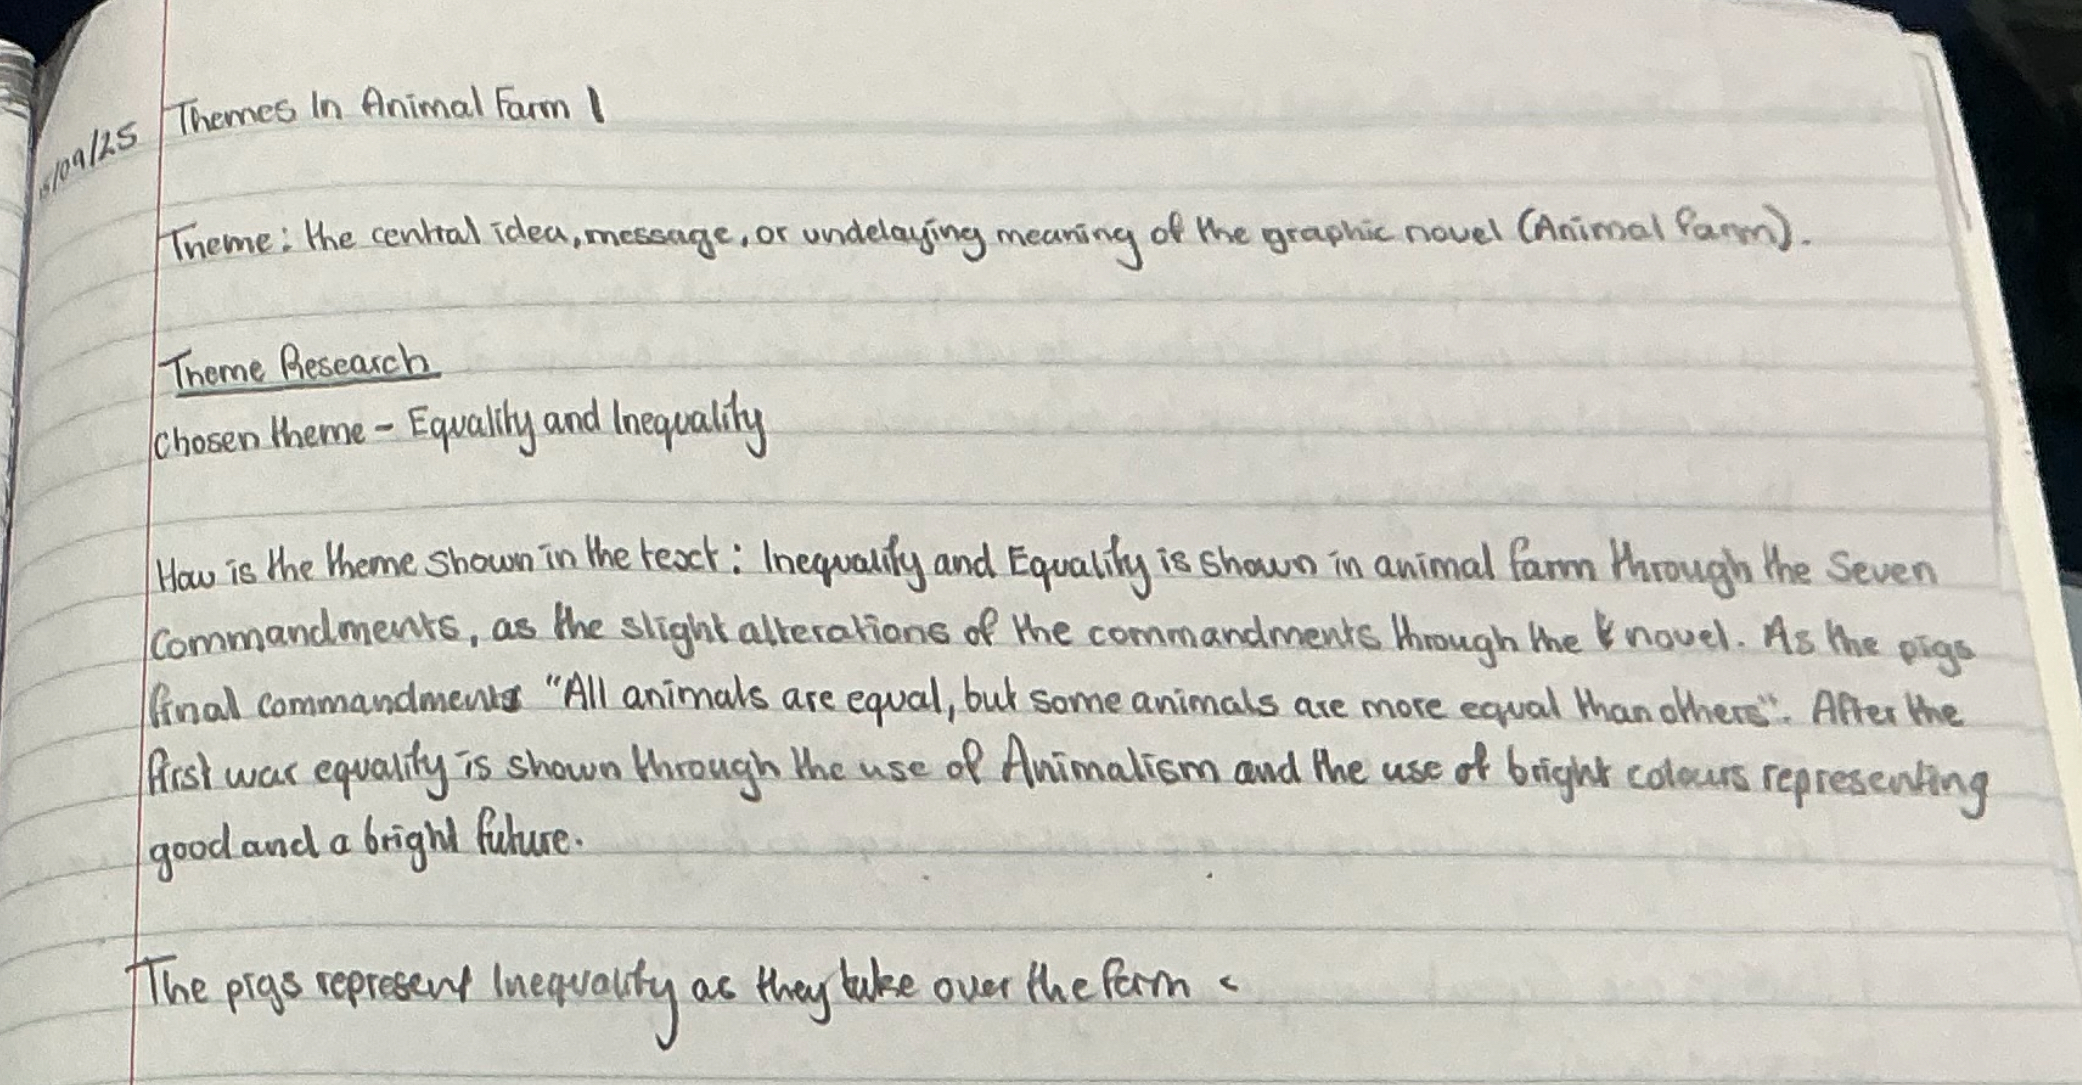 Themes In Animal Farm 1
/09/25
Theme: the central idea, message, or undelaying meaning of the graphic novel (Animal farm).
Theme Research
Chosen theme - Equality and Inequality
How is the theme shown in the text: Inequality and Equality is shown in animal farm through the Seven
Commandments, as the slight alterations of the commandments through the novel. As the pigs
final commandments "All animals are equal, but some animals are more equal than others". After the
first war equality is shown through the use of Animalism and the use of bright colours representing
good and a bright future.
The pigs represent Inequality as they take over the farm